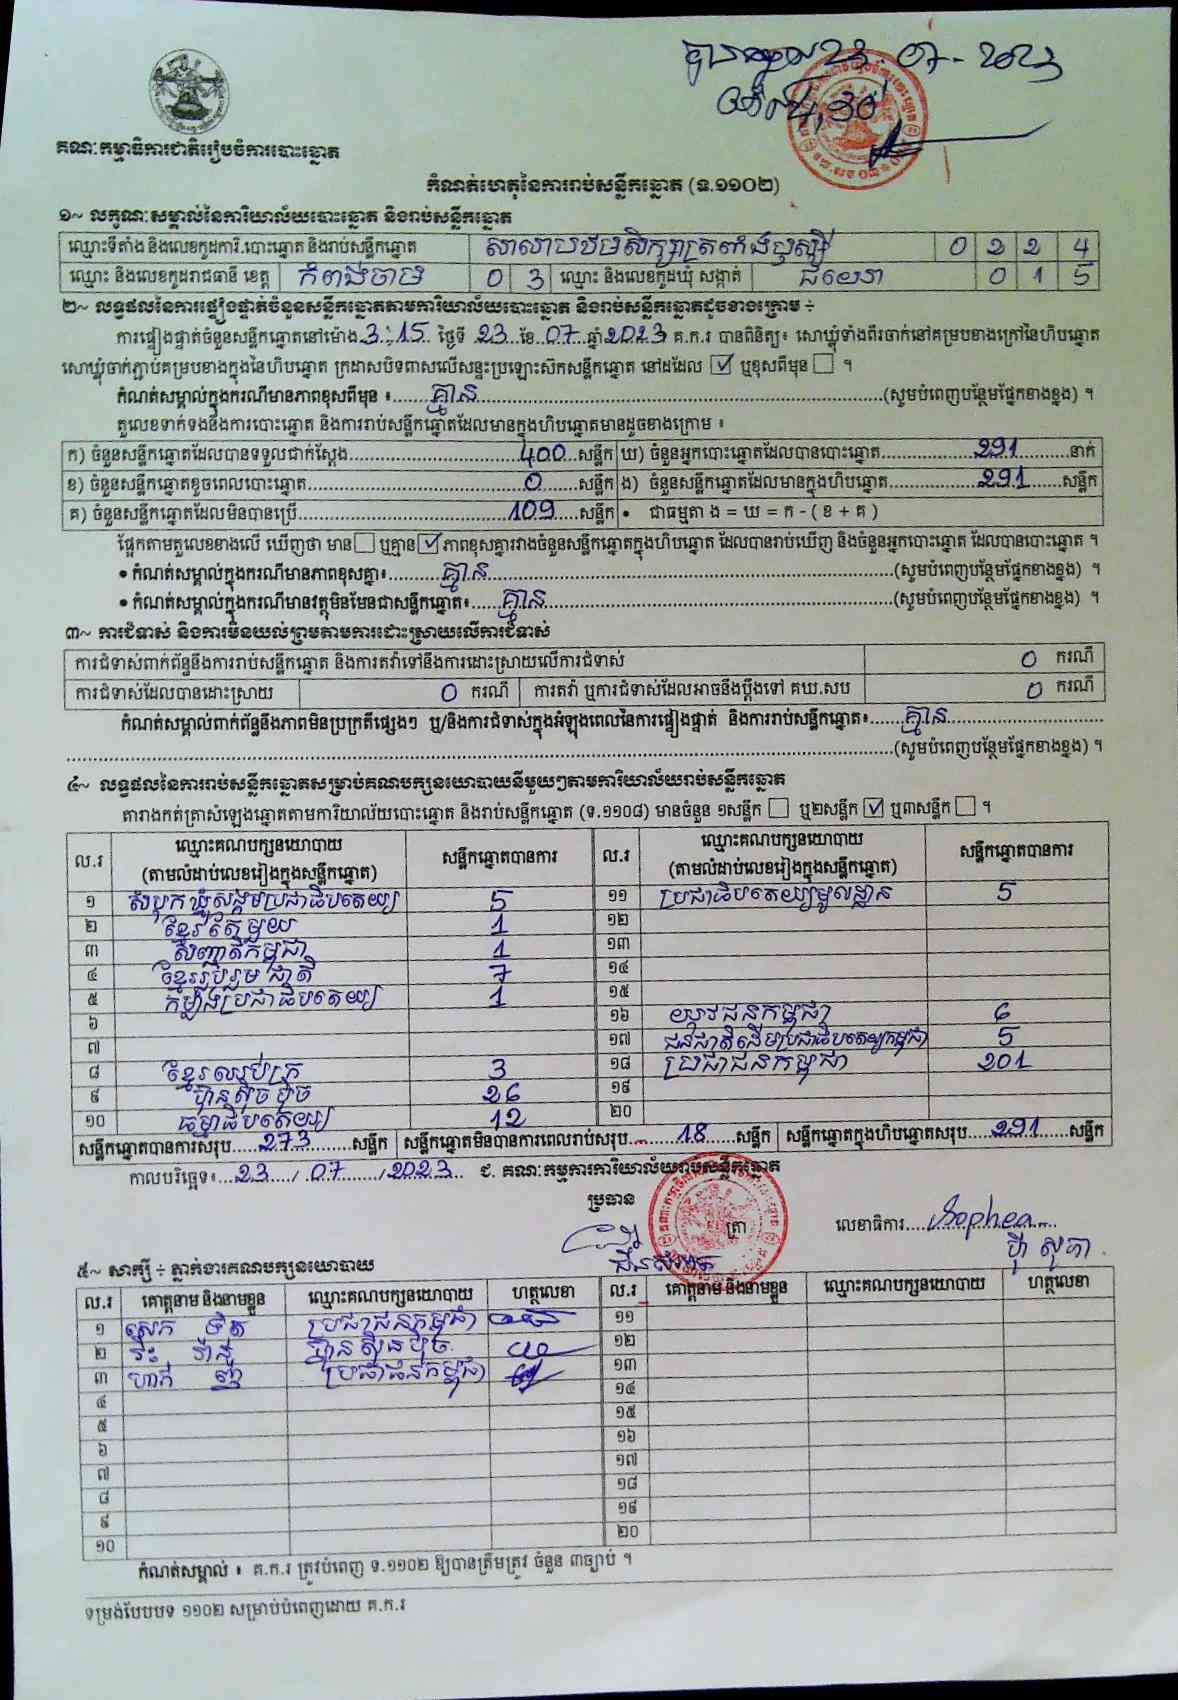 គណៈកម្មាធិការជាតិរៀបចំការបោះឆ្នោត
23-07-2023
កំណត់ហេតុនៃការរាប់សន្លឹកឆ្នោត (ទ.១១០២)
១~ លក្ខណៈសម្គាល់នៃការិយាល័យបោះឆ្នោត និងរាប់សន្លឹកឆ្នោត
ឈ្មោះទីតាំង និងលេខកូដការិ.បោះឆ្នោត និងរាប់សន្លឹកឆ្នោត សាលាបឋមសិក្សាត្រពាំងឫស្សី 0 2 2 4
ឈ្មោះ និងលេខកូដរាជធានី ខេត្ត កំពង់ចាម 0 3 ឈ្មោះ និងលេខកូដឃុំ សង្កាត់ 0 1 5
២~ លទ្ធផលនៃការផ្ទៀងផ្ទាត់ចំនួនសន្លឹកឆ្នោតតាមការិយាល័យបោះឆ្នោត និងរាប់សន្លឹកឆ្នោតដូចខាងក្រោម ÷
ការផ្ទៀងផ្ទាត់ចំនួនសន្លឹកឆ្នោតនៅម៉ោង 3:15 ថ្ងៃទី 23 ខែ 07 ឆ្នាំ 2023 គ.ក.រ បានពិនិត្យ៖ សោឃ្លុំទាំងពីរចាក់នៅគម្របខាងក្រៅនៃហិបឆ្នោត
សោឃ្លុំចាក់ភ្ជាប់គម្របខាងក្នុងនៃហិបឆ្នោត ក្រដាសបិទពាសលើសន្ទះប្រឡោះស៊កសន្លឹកឆ្នោត នៅដដែល ☑ ឬខុសពីមុន ☐ ។
កំណត់សម្គាល់ក្នុងករណីមានភាពខុសពីមុន ៖ គ្មាន (សូមបំពេញបន្ថែមផ្នែកខាងខ្នង) ។
តួលេខទាក់ទងនឹងការបោះឆ្នោត និងការរាប់សន្លឹកឆ្នោតដែលមានក្នុងហិបឆ្នោតមានដូចខាងក្រោម ៖
ក) ចំនួនសន្លឹកឆ្នោតដែលបានទទួលជាក់ស្តែង 400 សន្លឹក ឃ) ចំនួនអ្នកបោះឆ្នោតដែលបានបោះឆ្នោត 291 នាក់
ខ) ចំនួនសន្លឹកឆ្នោតខូចពេលបោះឆ្នោត 0 សន្លឹក ង) ចំនួនសន្លឹកឆ្នោតដែលមានក្នុងហិបឆ្នោត 291 សន្លឹក
គ) ចំនួនសន្លឹកឆ្នោតដែលមិនបានប្រើ 109 សន្លឹក • ជាធម្មតា ង = ឃ = ក - ( ខ + គ )
ផ្អែកតាមតួលេខខាងលើ ឃើញថា មាន ☐ ឬគ្មាន ☑ ភាពខុសគ្នារវាងចំនួនសន្លឹកឆ្នោតក្នុងហិបឆ្នោត ដែលបានរាប់ឃើញ និងចំនួនអ្នកបោះឆ្នោត ដែលបានបោះឆ្នោត ។
• កំណត់សម្គាល់ក្នុងករណីមានភាពខុសគ្នា៖ គ្មាន (សូមបំពេញបន្ថែមផ្នែកខាងខ្នង) ។
• កំណត់សម្គាល់ក្នុងករណីមានវត្ថុមិនមែនជាសន្លឹកឆ្នោត៖ គ្មាន (សូមបំពេញបន្ថែមផ្នែកខាងខ្នង) ។
៣~ ការជំទាស់ និងការមិនយល់ព្រមតាមការដោះស្រាយលើការជំទាស់
ការជំទាស់ពាក់ព័ន្ធនឹងការរាប់សន្លឹកឆ្នោត និងការតវ៉ាទៅនឹងការដោះស្រាយលើការជំទាស់ 0 ករណី
ការជំទាស់ដែលបានដោះស្រាយ 0 ករណី ការតវ៉ា ឬការជំទាស់ដែលអាចនឹងប្តឹងទៅ គឃ.សប 0 ករណី
កំណត់សម្គាល់ពាក់ព័ន្ធនឹងភាពមិនប្រក្រតីផ្សេងៗ ឬ/និងការជំទាស់ក្នុងអំឡុងពេលនៃការផ្ទៀងផ្ទាត់ និងការរាប់សន្លឹកឆ្នោត៖ គ្មាន
(សូមបំពេញបន្ថែមផ្នែកខាងខ្នង) ។
៤~ លទ្ធផលនៃការរាប់សន្លឹកឆ្នោតសម្រាប់គណបក្សនយោបាយនីមួយៗតាមការិយាល័យរាប់សន្លឹកឆ្នោត
តារាងកត់ត្រាសំឡេងឆ្នោតតាមការិយាល័យបោះឆ្នោត និងរាប់សន្លឹកឆ្នោត (ទ.១១០៨) មានចំនួន ១សន្លឹក ☐ ឬ២សន្លឹក ☑ ឬ៣សន្លឹក ☐ ។
ល.រ ឈ្មោះគណបក្សនយោបាយ (តាមលំដាប់លេខរៀងក្នុងសន្លឹកឆ្នោត) សន្លឹកឆ្នោតបានការ ល.រ ឈ្មោះគណបក្សនយោបាយ (តាមលំដាប់លេខរៀងក្នុងសន្លឹកឆ្នោត) សន្លឹកឆ្នោតបានការ
១ សំបុកឃ្មុំសង្គមប្រជាធិបតេយ្យ 5 ១១ ប្រជាធិបតេយ្យមូលដ្ឋាន 5
២ ខ្មែរតែមួយ 1 ១២
៣ សញ្ជាតិកម្ពុជា 1 ១៣
៤ ខ្មែររួបរួមជាតិ 7 ១៤
៥ កម្លាំងប្រជាធិបតេយ្យ 1 ១៥
៦ ១៦ យុវជនកម្ពុជា 6
៧ ១៧ ជនជាតិដើមប្រជាធិបតេយ្យកម្ពុជា 5
៨ ខ្មែរឈប់ក្រ 3 ១៨ ប្រជាជនកម្ពុជា 201
៩ ហ៊្វុនស៊ិនប៉ិច 26 ១៩
១០ ធម្មាធិបតេយ្យ 12 ២០
សន្លឹកឆ្នោតបានការសរុប 273 សន្លឹក សន្លឹកឆ្នោតមិនបានការពេលរាប់សរុប 18 សន្លឹក សន្លឹកឆ្នោតក្នុងហិបឆ្នោតសរុប 291 សន្លឹក
កាលបរិច្ឆេទ៖ 23 / 07 / 2023 ជ. គណៈកម្មការការិយាល័យរាប់សន្លឹកឆ្នោត
ប្រធាន
ត្រា លេខាធិការ Sophea
៥~ សាក្សី ÷ ភ្នាក់ងារគណបក្សនយោបាយ
ល.រ គោត្តនាម និងនាមខ្លួន ឈ្មោះគណបក្សនយោបាយ ហត្ថលេខា ល.រ គោត្តនាម និងនាមខ្លួន ឈ្មោះគណបក្សនយោបាយ ហត្ថលេខា
១ ប្រជាជនកម្ពុជា ១១
២ ហ៊្វុនស៊ិនប៉ិច ១២
៣ ប្រជាជនកម្ពុជា ១៣
៤ ១៤
៥ ១៥
៦ ១៦
៧ ១៧
៨ ១៨
៩ ១៩
១០ ២០
កំណត់សម្គាល់ ៖ គ.ក.រ ត្រូវបំពេញ ទ.១១០២ ឱ្យបានត្រឹមត្រូវ ចំនួន ៣ច្បាប់ ។
ទម្រង់បែបបទ ១១០២ សម្រាប់បំពេញដោយ គ.ក.រ